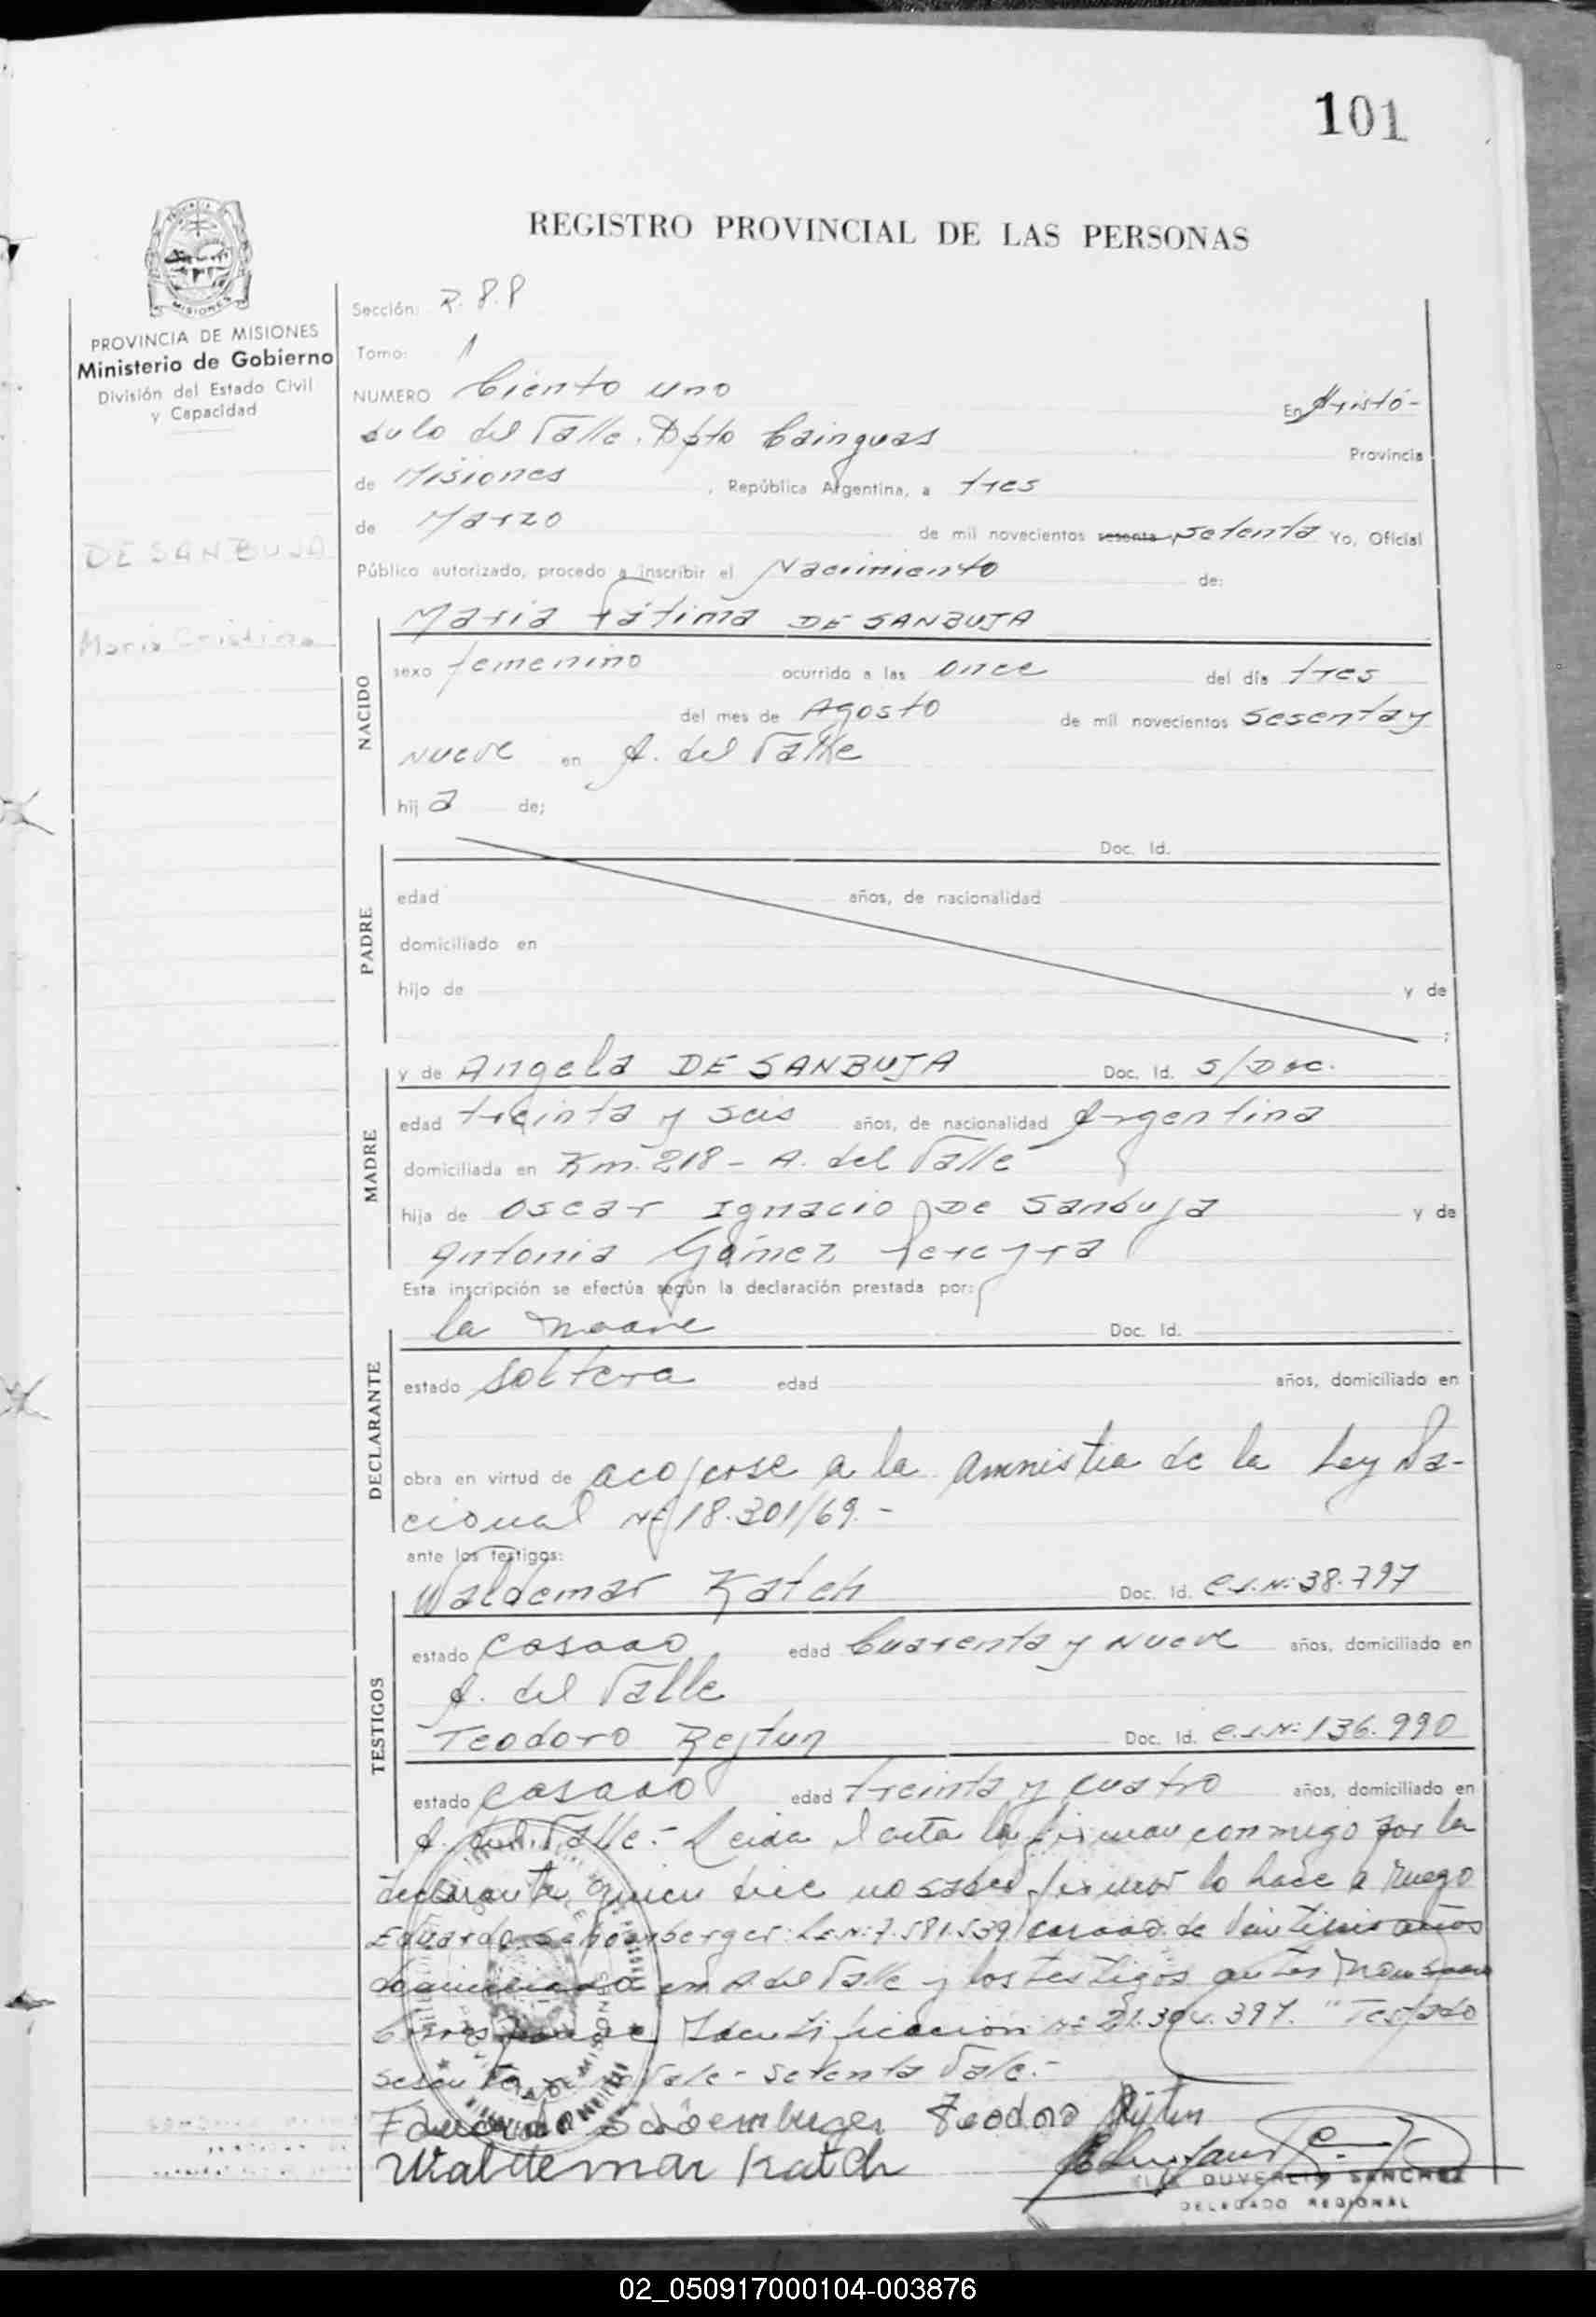 101
REGISTRO PROVINCIAL DE LAS PERSONAS
MISIONES
PROVINCIA DE MISIONES
Ministerio de Gobierno
División del Estado Civil
y Capacidad
DE SANBUJA
Maria Cristina
Sección: R. P. P
Tomo: 1
NUMERO Ciento uno En Aristó-
bulo del Valle. Dpto Cainguas Provincia
de Misiones, República Argentina, a tres
de Marzo de mil novecientos sesenta y setenta Yo, Oficial
Público autorizado, procedo a inscribir el Nacimiento de:
NACIDO
Maria Fátima DE SANBUJA
sexo femenino ocurrido a las once del día tres
del mes de Agosto de mil novecientos sesenta y
nueve en A. del Valle
hij a de;
PADRE
Doc. Id.
edad años, de nacionalidad
domiciliado en
hijo de y de
;
MADRE
y de Angela DE SANBUJA Doc. Id. S/Doc.
edad treinta y seis años, de nacionalidad Argentina
domiciliada en Km. 218 - A. del Valle
hija de Oscar Ignacio De Sanbuja y de
Antonia Gómez Pereyra
Esta inscripción se efectúa según la declaración prestada por:
DECLARANTE
la madre Doc. Id.
estado soltera edad años, domiciliado en
obra en virtud de acojerse a la amnistia de la Ley Na-
cional Nº 18.301/69.-
ante los testigos:
TESTIGOS
Waldemar Katch Doc. Id. C.I.Nº 38.797
estado casado edad Cuarenta y nueve años, domiciliado en
A. del Valle
Teodoro Rejtun Doc. Id. C.I.Nº 136.990
estado casado edad treinta y cuatro años, domiciliado en
A. del Valle.- Leida el acta la firman conmigo por la
declarante quien dice no saber firmar lo hace a ruego
Eduardo L.E.Nº 7.581.539 casado de años
domiciliado en A del Valle y los testigos antes
Identificación Nº 21.304.397. "Testado
sesenta Vale - setenta Vale.-
Teodoro
Waldemar Katch
DUVERLIN SANCHEZ
DELEGADO REGIONAL
02_050917000104-003876